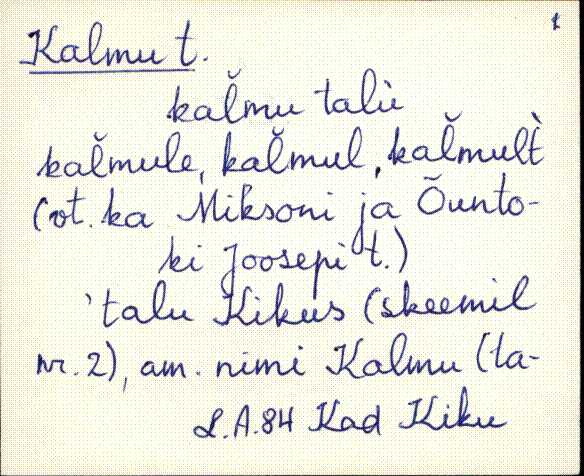 1
Kalmu t.
kal̆mu talù
kal̆mule, kal̆mul, kal̆mult̀
(vt. ka Miksoni ja Õunto-
ki Joosepi t.)
'talu Kikus (skeemil
nr. 2), am. nimi Kalmu (ta-
L.A.84 Kad Kiku